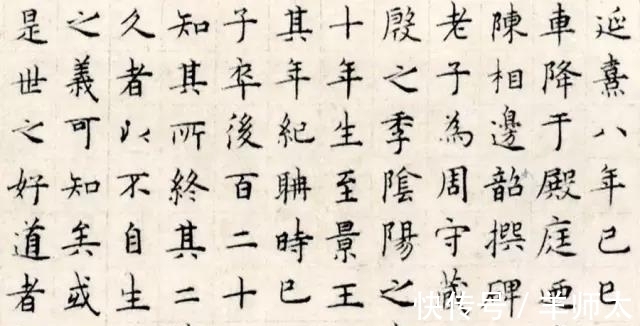 延熹八年已巳
車降于殿庭西
陳相邊韶撰碑
老子為周守藏
殷之季陰陽之
十年生至景王
其年紀聃時已
子卒後百二十
知其所終其二
久者以不自生
之義可知矣或
是世之好道者
快传号/羊师太